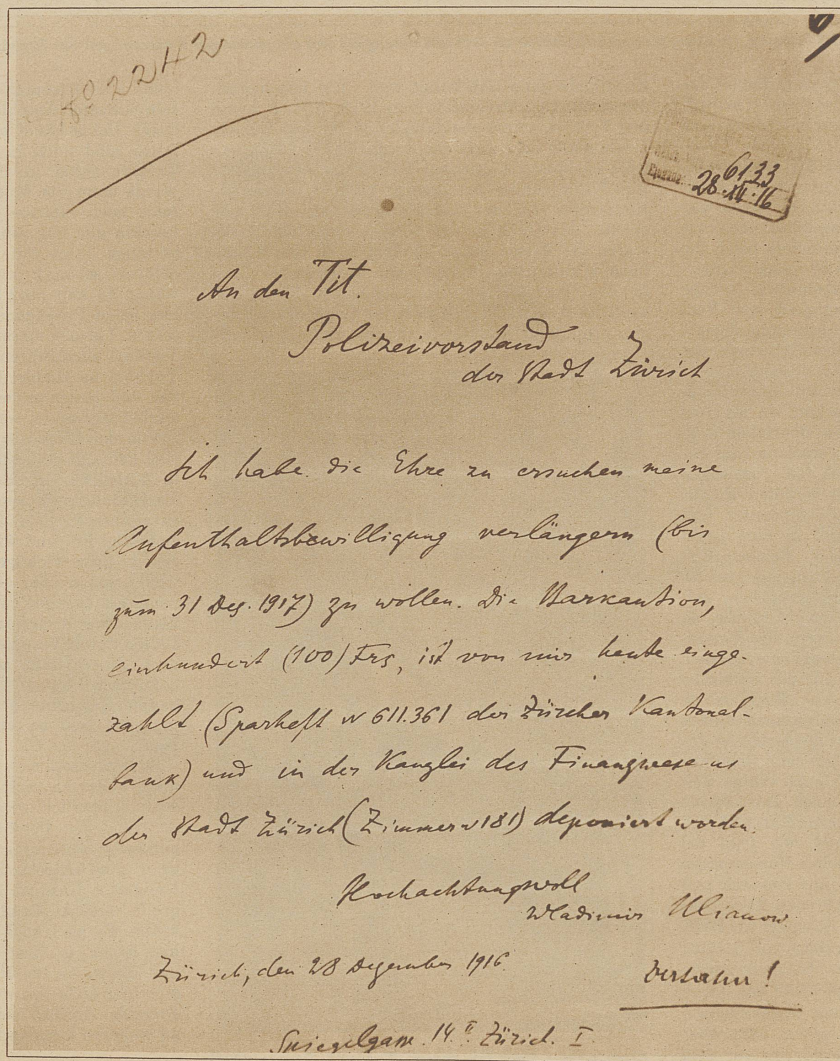 No 2242
6133
28.XII.16
An den Tit.
Polizeivorstand
der Stadt Zürich
Ich habe die Ehre zu ersuchen meine
Aufenthaltsbewilligung verlängern (bis
zum 31 Dez. 1917) zu wollen. Die Barkaution,
einhundert (100) Frs, ist von mir heute einge-
zahlt (Sparheft N 611.361 der Zürcher Kantonal-
bank) und in der Kanzlei des Finanzwesens
der Stadt Zürich (Zimmer N 181) deponiert worden.
Hochachtungsvoll
Wladimir Ulianow
Zürich, den 28 Dezember 1916
Spiegelgasse 14 II Zürich. I